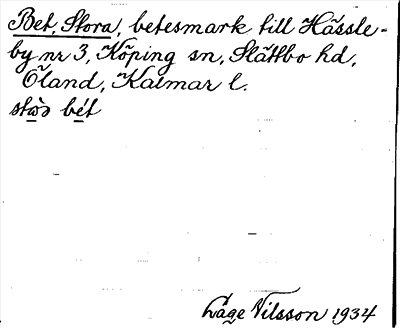 Bet, Stora, betesmark till Hässle-
by nr 3, Köping sn, Slättbo hd,
Öland, Kalmar l.
stòͅ bét
Låge Nilsson 1934